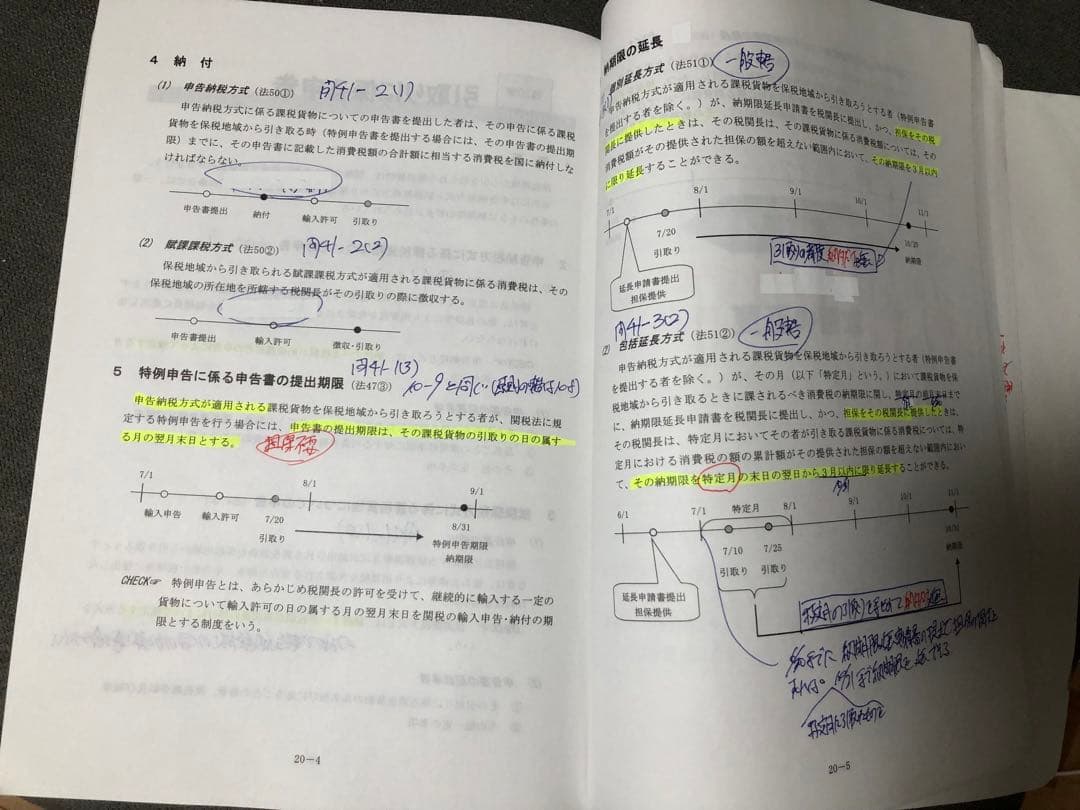 4 納 付
(1) 申告納税方式(法50①) 問41-2(1)
申告納税方式に係る課税貨物についての申告書を提出した者は、その申告に係る課税
貨物を保税地域から引き取る時(特例申告書を提出する場合には、その申告書の提出期
限)までに、その申告書に記載した消費税額の合計額に相当する消費税を国に納付しな
ければならない。
申告書提出 納付 輸入許可 引取り
(2) 賦課課税方式(法50②) 問41-2(2)
保税地域から引き取られる賦課課税方式が適用される課税貨物に係る消費税は、その
保税地域の所在地を所轄する税関長がその引取りの際に徴収する。
申告書提出 輸入許可 徴収・引取り
問41-1(3)
5 特例申告に係る申告書の提出期限(法47③) 10-9と同じ
申告納税方式が適用される課税貨物を保税地域から引き取ろうとする者が、関税法に規
定する特例申告を行う場合には、申告書の提出期限は、その課税貨物の引取りの日の属す
る月の翌月末日とする。
担保不要
7/1 8/1 9/1
輸入申告 輸入許可 7/20 8/31
引取り 特例申告期限
納期限
CHECK☞ 特例申告とは、あらかじめ税関長の許可を受けて、継続的に輸入する一定の
貨物について輸入許可の日の属する月の翌月末日を関税の輸入申告・納付の期
限とする制度をいう。
20-4
納期限の延長
個別延長方式(法51①) 一般輸
申告納税方式が適用される課税貨物を保税地域から引き取ろうとする者(特例申告書
を提出する者を除く。)が、納期限延長申請書を税関長に提出し、かつ、担保をその税
関長に提供したときは、その税関長は、その課税貨物に係る消費税額については、その
消費税額がその提供された担保の額を超えない範囲内において、その納期限を3月以内
に限り延長することができる。
7/1 8/1 9/1 10/1 11/1
7/20 10/20
引取り 納期限
引取りの都度納期限延長
延長申請書提出
担保提供
問41-3(2)
(2) 包括延長方式(法51②) 一般輸
申告納税方式が適用される課税貨物を保税地域から引き取ろうとする者(特例申告書
を提出する者を除く。)が、その月(以下「特定月」という。)において課税貨物を保
税地域から引き取るときに課されるべき消費税の納期限に関し、特定月の前月末日まで
に、納期限延長申請書を税関長に提出し、かつ、担保をその税関長に提供したときは、
その税関長は、特定月においてその者が引き取る課税貨物に係る消費税については、特
定月における消費税の額の累計額がその提供された担保の額を超えない範囲内におい
て、その納期限を特定月の末日の翌日から3月以内に限り延長することができる。
6/1 7/1 特定月 8/1 9/1 10/1 11/1
7/10 7/25 10/31
引取り 引取り 納期限
延長申請書提出
担保提供
20-5